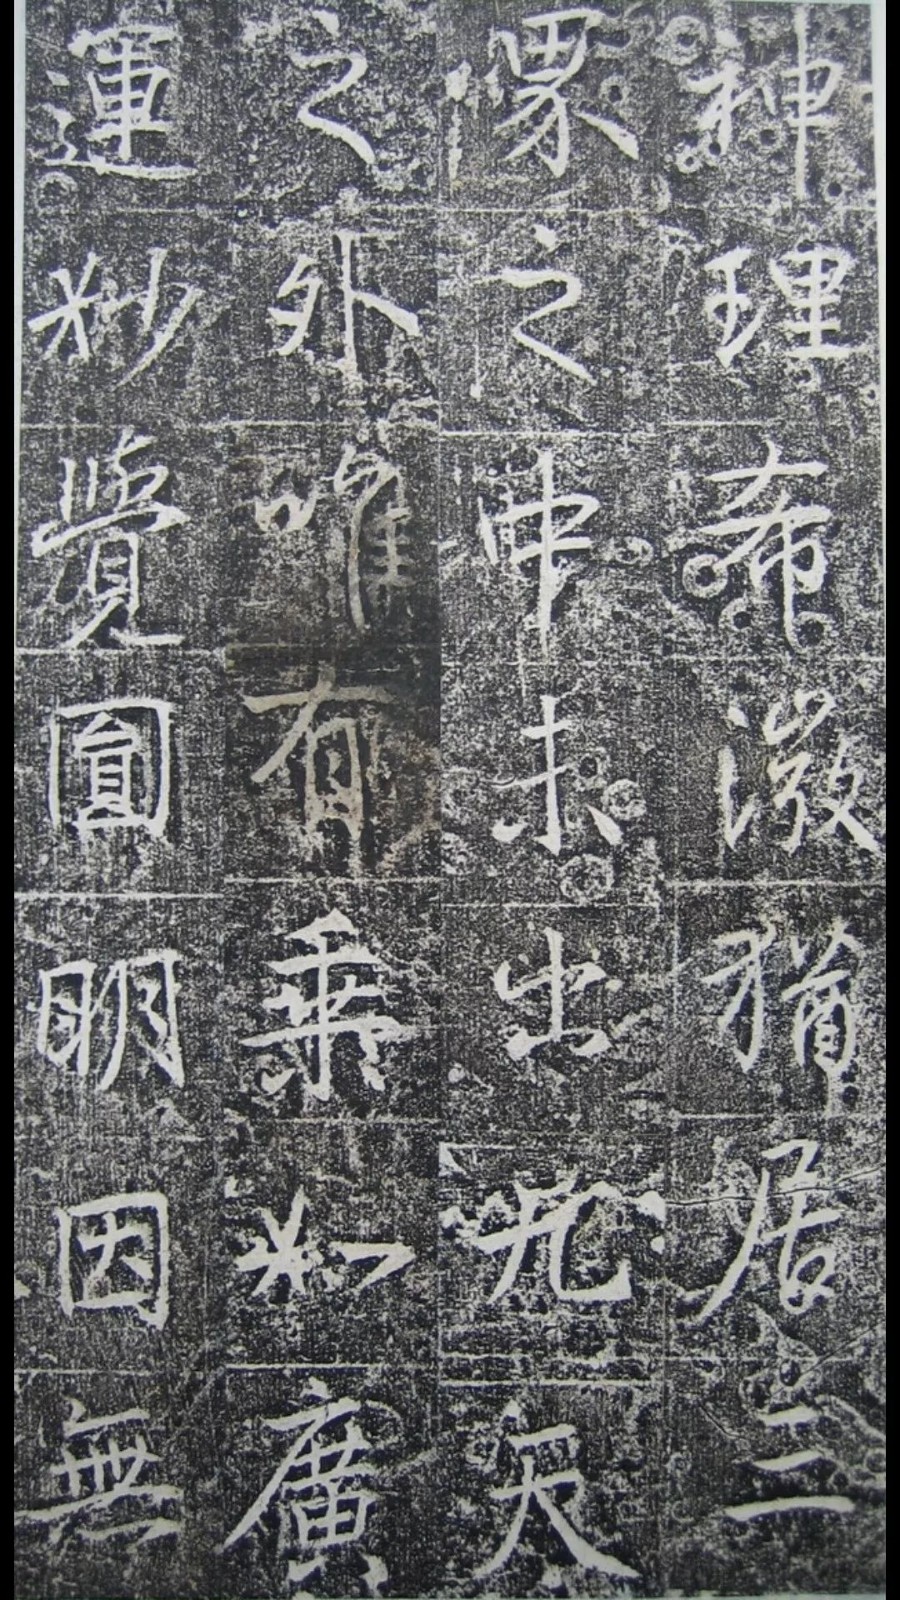 神理希微猶居三
象之中未出九天
之外唯有乘如廣
運妙覺圓明因無